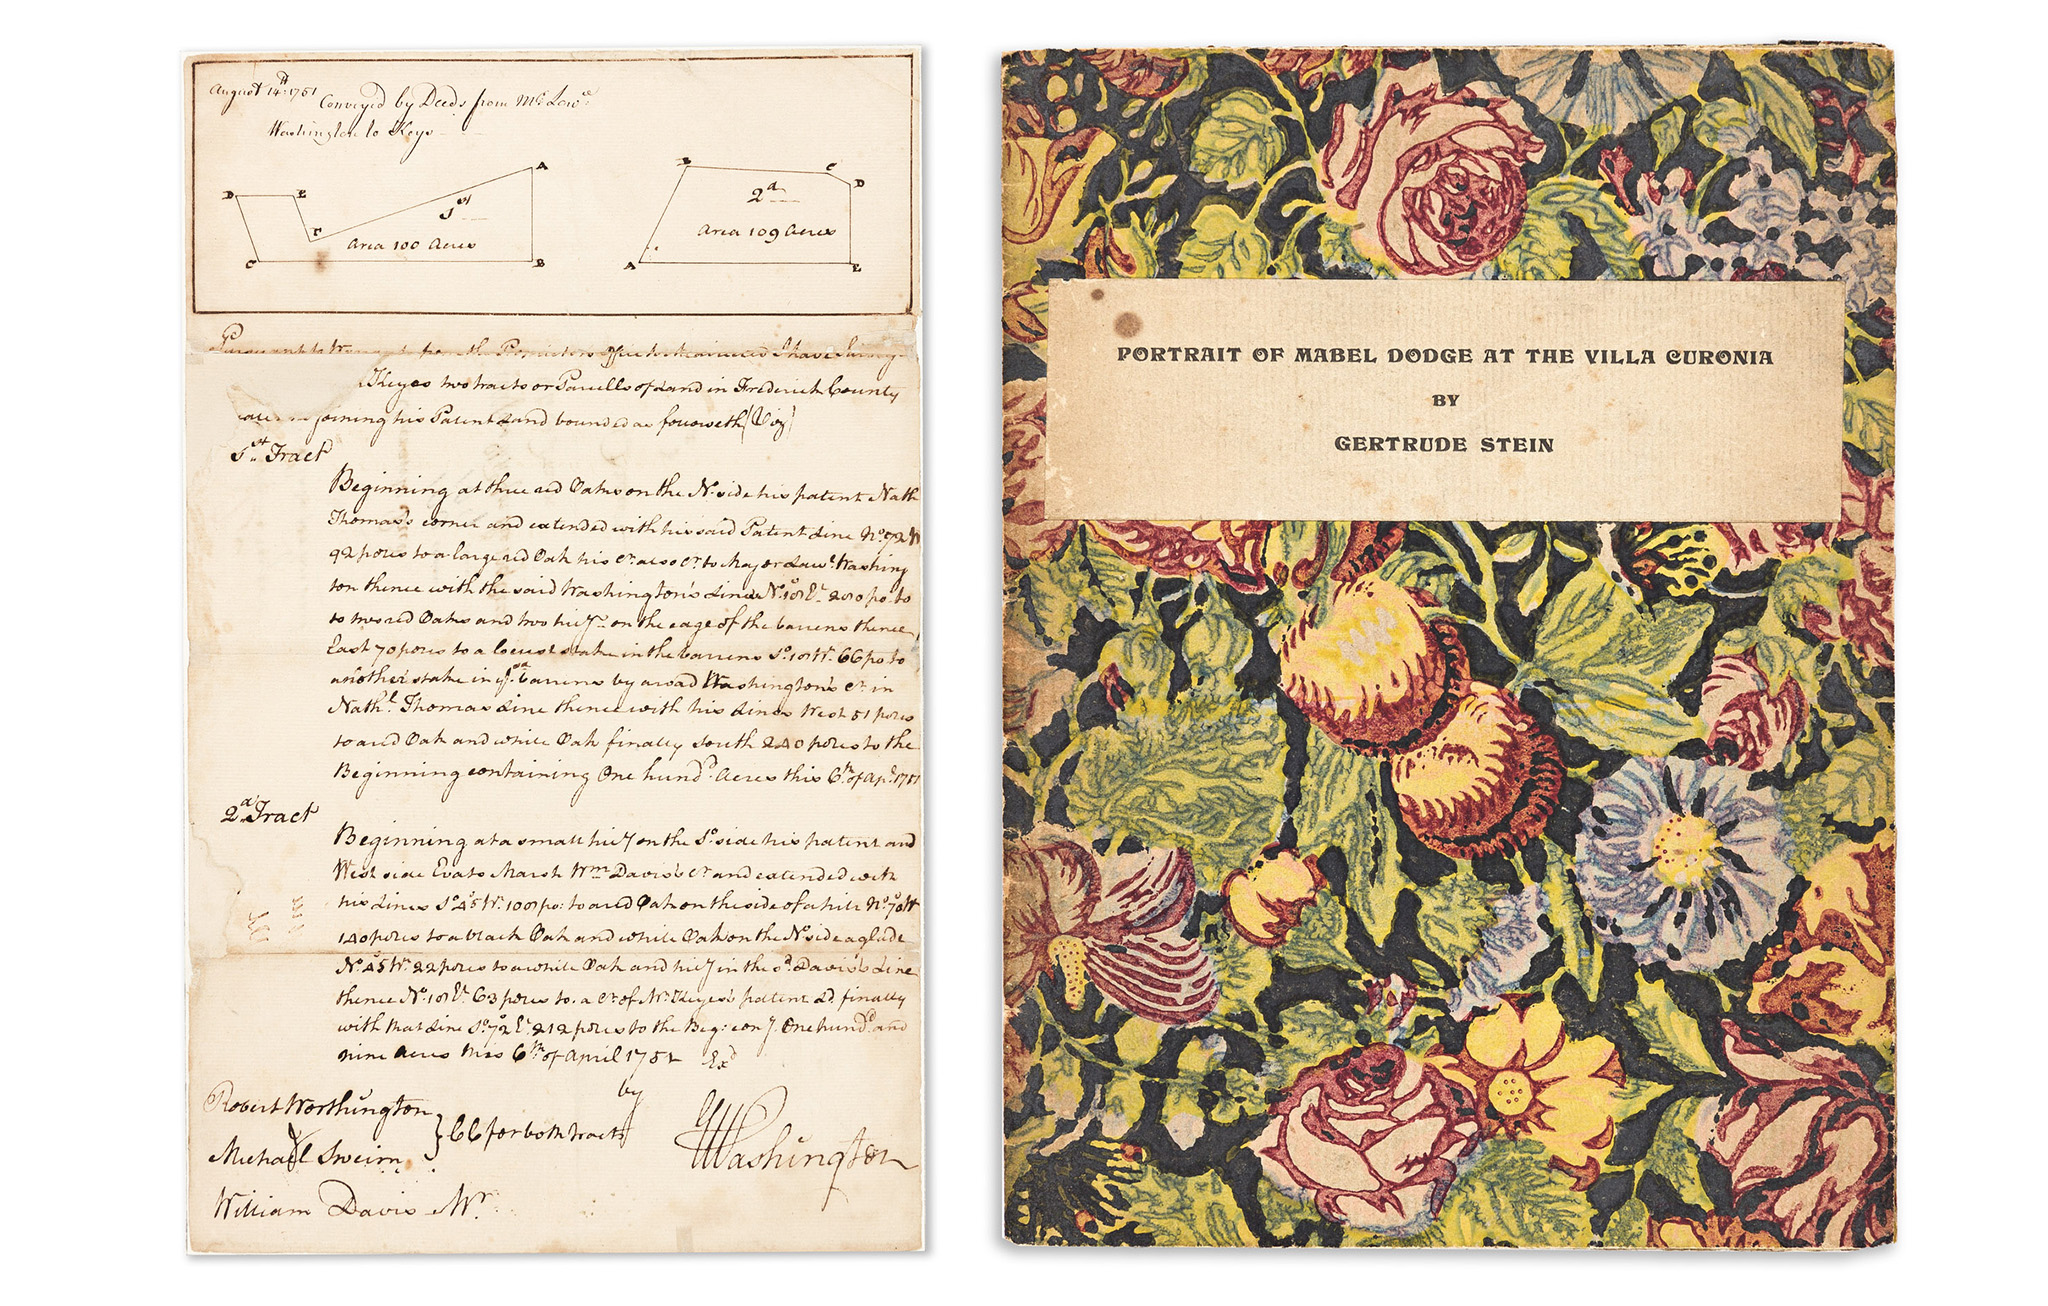 August 14th 1751 Conveyed by Deeds from Mr. Lawe
Washington to Keys
D E A
B C D
1st
2d
C
Area 100 Acres
Area 109 Acres
C B
A E
Pursuant to from the Proprietors Office to me directed I have Survey
Keyes two tracts or Parcells of Land in Frederick County
joining his Patent Land bounded as followeth (Viz)
1st Tract
Beginning at three red Oaks on the No. side his patent Nath
Thomas's corner and extended with his said Patent Line No. 72 W
92 poles to a large red Oak his Cr. also Cr. to Major Lawe. Washing
ton thence with the said Washington's Line No. 18 Et. 200 po. to
to two red Oaks and two hicy. on the edge of the barrens thence
East 70 poles to a locust stake in the barrens So. 18 Wt. 66 po. to
another stake in ye. sd. barrens by a road Washington's Cr. in
Nathl. Thomas Line thence with his Lines West 51 poles
to a red Oak and white Oak finally South 240 poles to the
Beginning containing One hund. Acres this 6th of Apl. 1751
2d Tract
Beginning at a small hicy on the So. side his patent and
West side Evats Marsh Wm Davis's Cr. and extended with
his Lines So. 45 Wt. 100 po: to a red Oak on the side of a hill No. 70 W
140 poles to a black Oak and white Oak on the No. side a glade
No. 45 Wt. 22 poles to a white Oak and hicy in the sd. Davis's Line
thence No. 18 Et. 63 poles to a Cr. of Mr. Keyes's patent Ld. finally
with that Line So. 72 Et. 212 poles to the Beg: cony. One hund. and
nine Acres this 6th of April 1751 Exd
by
Robert Worthington
} CC for both tracts
Michael Sweim
GWashington
William Davis Mr.
PORTRAIT OF MABEL DODGE AT THE VILLA CURONIA
BY
GERTRUDE STEIN